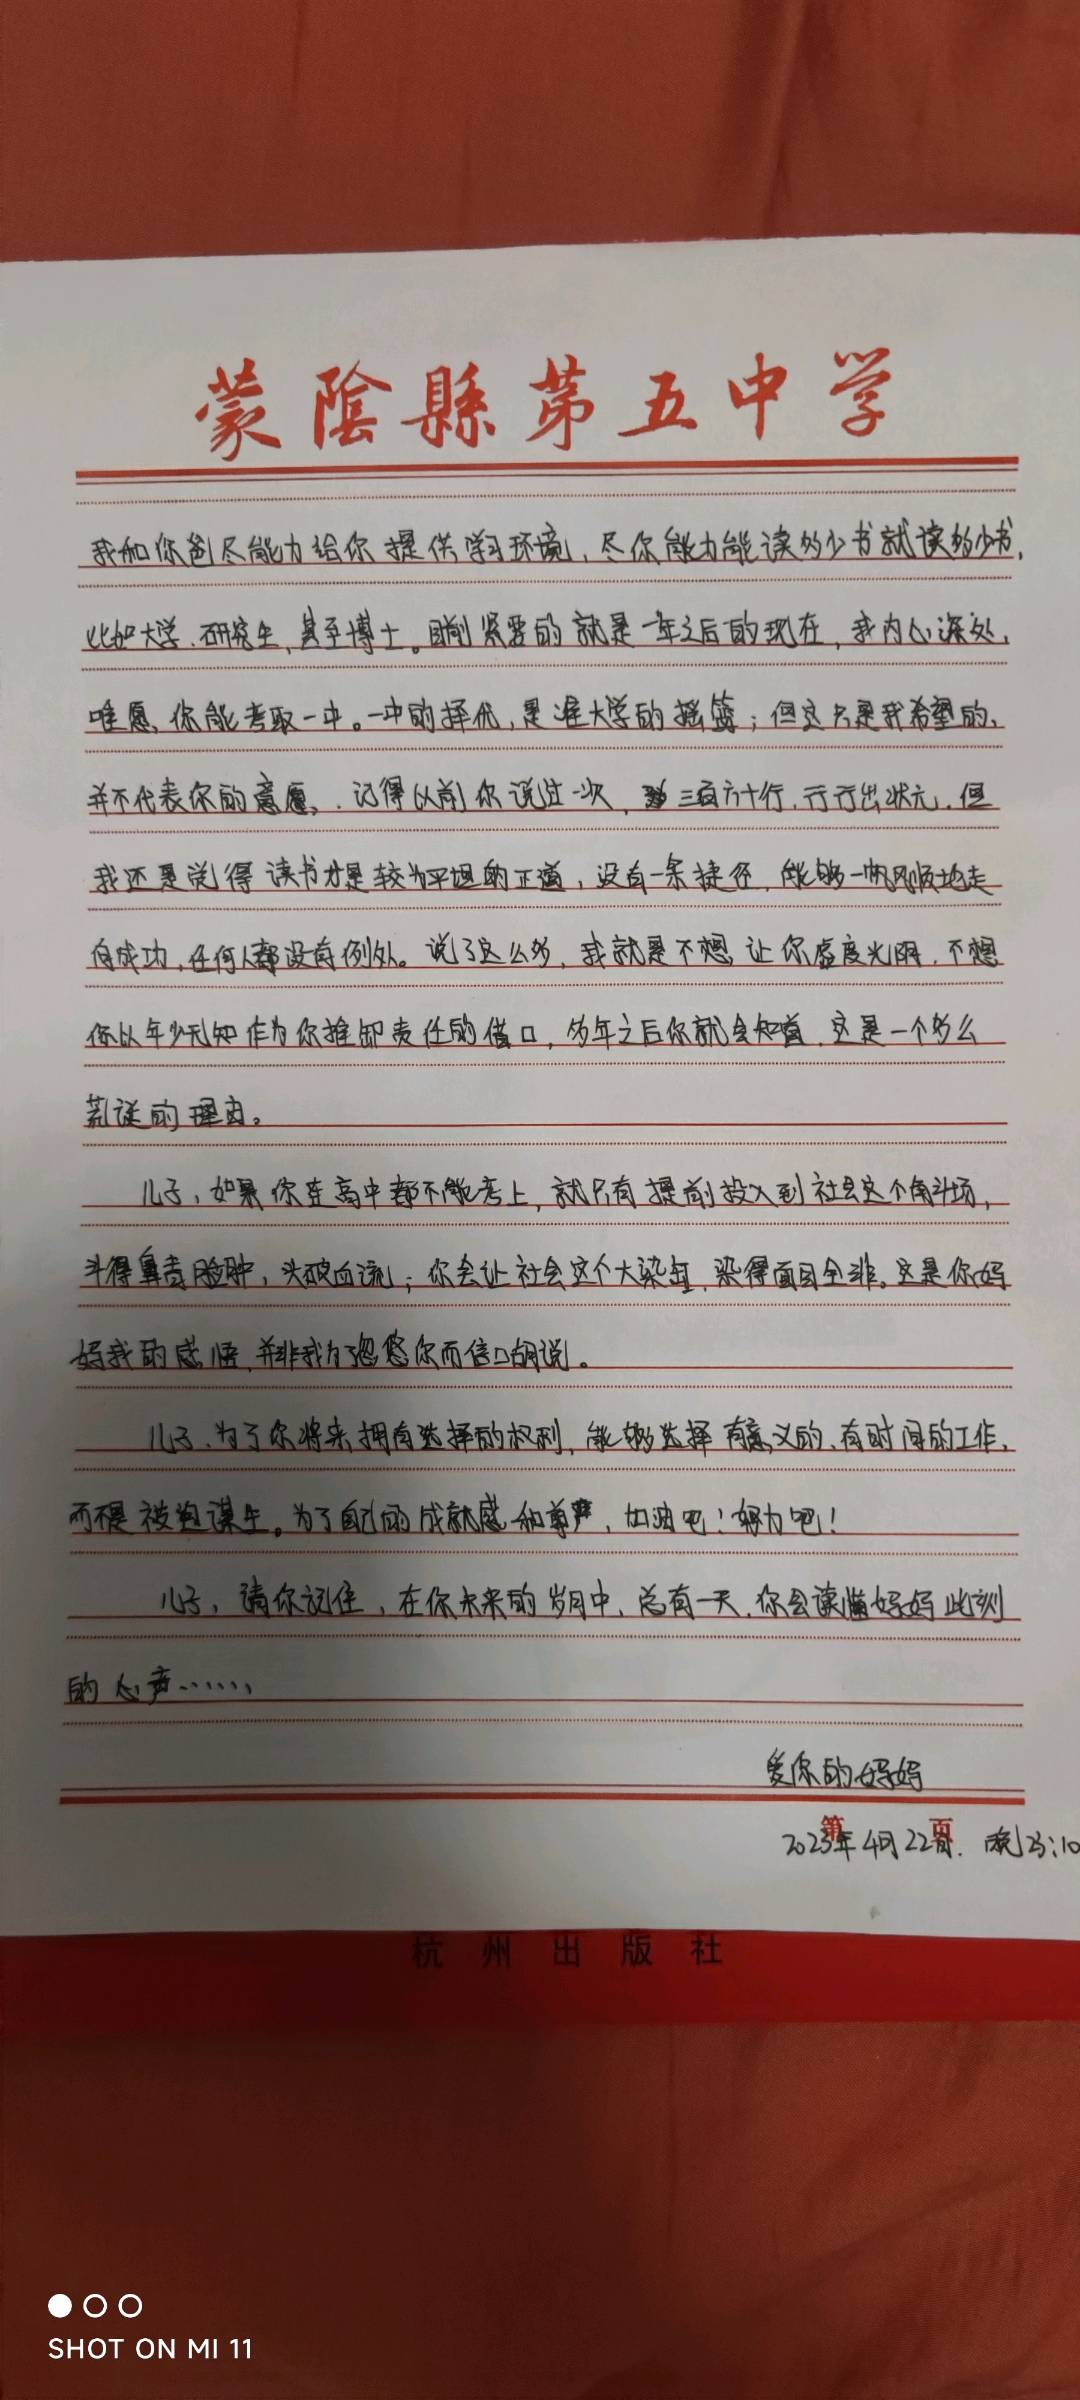 蒙陰縣第五中学
我和你爸尽能力给你提供学习环境，尽你能力能读多少书就读多少书，
比如大学、研究生，甚至博士。目前紧要的就是一年之后的现在，我内心深处，
唯愿你能考取一中。一中的择优，是准大学的摇篮；但这只是我希望的，
并不代表你的意愿，记得以前你说过一次，三百六十行，行行出状元，但
我还是觉得读书才是较为平坦的正道，没有一条捷径，能够一帆风顺地走
向成功，任何人都没有例外。说了这么多，我就是不想让你虚度光阴，不想
你以年少无知作为你推卸责任的借口，多年之后你就会知道，这是一个多么
荒诞的理由。
儿子，如果你连高中都不能考上，就只有提前投入到社会这个角斗场，
斗得鼻青脸肿，头破血流；你会让社会这个大染缸，染得面目全非。这是你妈
妈我的感悟，并非我为了忽悠你而信口胡说。
儿子，为了你将来拥有选择的权利，能够选择有意义的、有时间的工作，
而不是被迫谋生。为了自己的成就感和尊严，加油吧！努力吧！
儿子，请你记住，在你未来的岁月中，总有一天，你会读懂妈妈此刻
的心声……
爱你的妈妈
第 页
2023年4月22日. 晚23:10
杭州出版社
SHOT ON MI 11